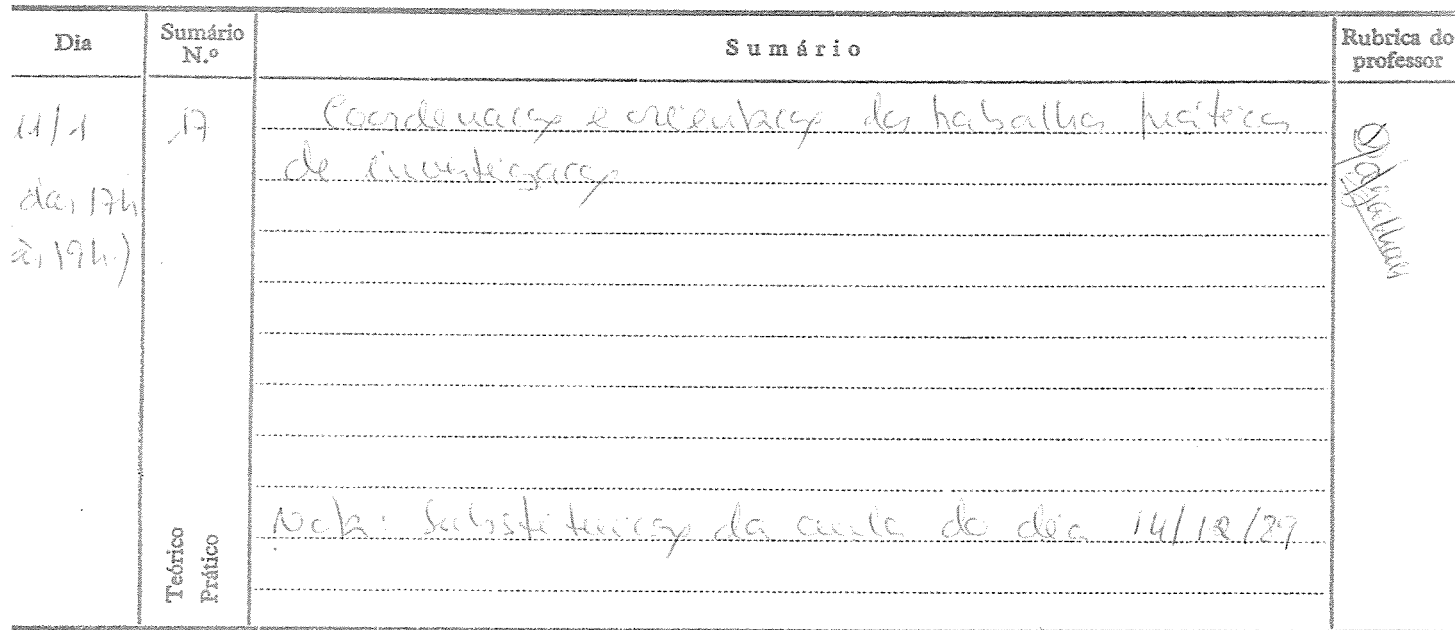 Dia
Sumário N.º
Sumário
Rubrica do professor
11/1
das 17h
às 19h)
17
Coordenação e orientação dos trabalhos práticos
de investigação
Nota: Substituição da aula do dia 14/12/
Teórico
Prático